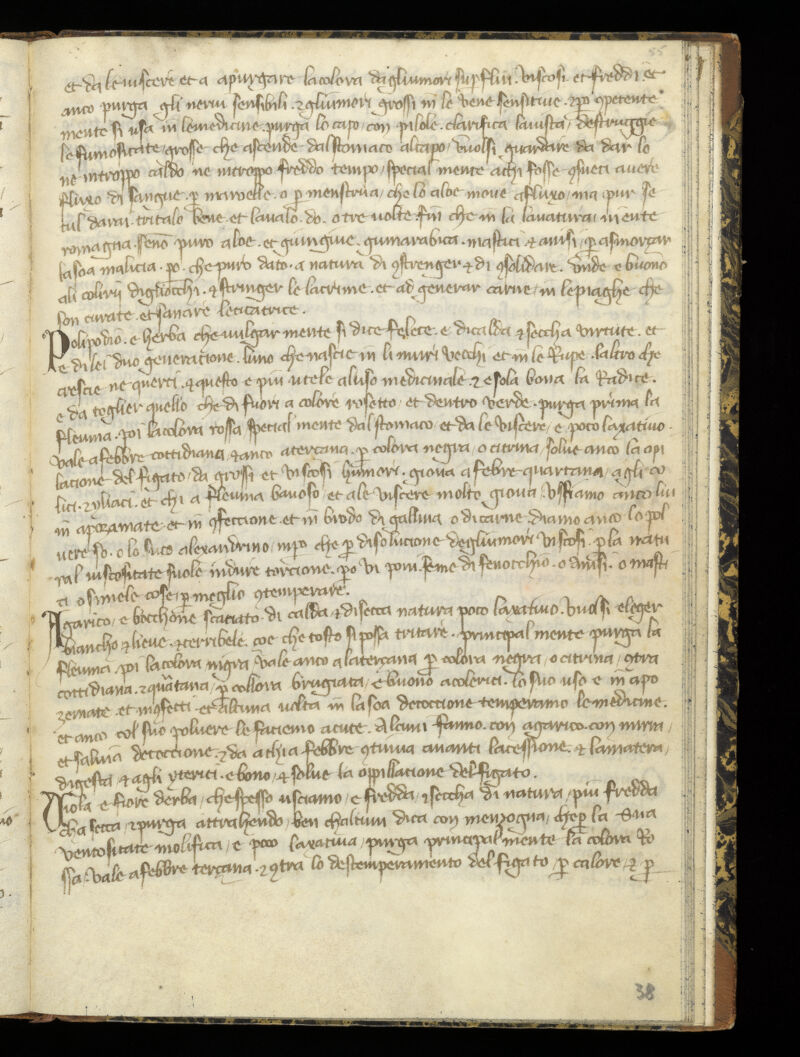 55
et da le viscere et a apurgare la colora da gliumori sup̱flui. viscosi et freddi et
anco purga gli nervi sensibili. ⁊ gliumori grossi in le vene sensitive. ⁊ p̱o ꝯpetente
mente si usa in le medicine. purga lo capo / con pilole. clarifica la vista / destruggie
le fumositate / grosse che ascende dal stomaco al capo / vuolsi guardare da dar lo
ne introppo caldo ne introppo freddo tempo / special mente achi fosse ꝯsueti avere
fluxo di sangue. p̱ maroelle. o p̱ menstrua / che lo aloe move afluxo / ma pur se
tul darai. tritalo bene. et lavalo. do. o tre volte. fin che in la lavatura niente
romagna. seno puro aloe. et giungive. gumarabica. mastici ⁊ anisi / p̱ asmorzar
la soa malicia. po. che puro dato. a natura di ꝯstrenger ⁊ di ꝯsolidare. Unde e buono
ali colirii digliocchi. ⁊ stringer le lacrime. et ad generar carne / in le piaghe che
son curate. et sanare le cicatrice.
Polipodio. e herba che vulgar mente si dice felece. e di calda ⁊ seccha virtute. et
e di lei duo generatione. luno che nascie in li muri vecchi et in le Rupe. laltro che
crescie ne querci. ⁊ questo e piu utele aluso medicinale ⁊ e sola bona la Radice.
e da toglier quello che di fuori a colore rosetto / et dentro verde. purga prima la
fleuma. poi la colora rossa special mente dal stomaco et da le viscere / e poco laxativo.
vale a febbre cottidiana ⁊ anco a terçana. p̱ colora negra / o citrina / solve anco la opi
latione del figato / da grossi et viscosi humori. giova a febre quartana / agli co
lici. ⁊ yliaci. et chi a fleuma bavoso / et a le viscere molto giova. Ussiamo anco lui
in apozamate. et in ꝯfeccione. et in brodo di gallina o di carne. diamo anco lo pol
vere so. o lo suco alexandrino / mp̱o che p̱ disolucione degliumori viscosi. p̱ la natu
ral viscositate suole indure torcione. p̱o vi poni seme di fenocchio. o anisi. o masti
ci o simele cose / p̱ meglio ꝯtemperare.
Agarico / e bocchone scaciato. di calda / ⁊ di secca natura poco laxativo. Vuolsi eleger
biancho ⁊ lieve. ⁊ terribele. çoe che tosto si possa tritare. principal mente purga la
fleuma. poi la colora nigra vale anco a la terçana p̱ colora negra / o citrina / ꝯtra
cottidiana. ⁊ quatana / p̱ collora brugiata / e buono a colerici. lo suo uso e in apo
zemate. et in ꝯfecti. et alcuna volta in la soa decoccione temperamo le medicine.
et anco col suo polvere le faciemo acute. Alcuni fanno. con agarico. con mirra /
et salvia decoccione. ⁊ da a chi a febbre ꝯtinua avanti lacessione. ⁊ la matera /
digesta / ⁊ agli yterici. e bono / ⁊ solve la oppillatione del figato.
Viola e fiore derba / che spesso usciamo / e fredda / ⁊ seccha di natura / piu fredda
cha secca ⁊ purga attrahendo / ben chalcuni dica con menzogna / che p̱ la sua
ventositate molifica / e poco laxativa / purga principal mente la colora Ro
ssa vale a febbre terçana. ⁊ ꝯtra lo destemperamento del figato / p̱ calore / ⁊ p̱
38